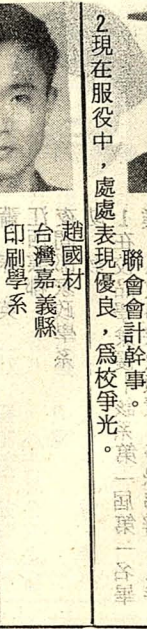 聯會會計幹事。
2.現在服役中，處處表現優良，爲校爭光。
趙國材
台灣嘉義縣
印刷學系